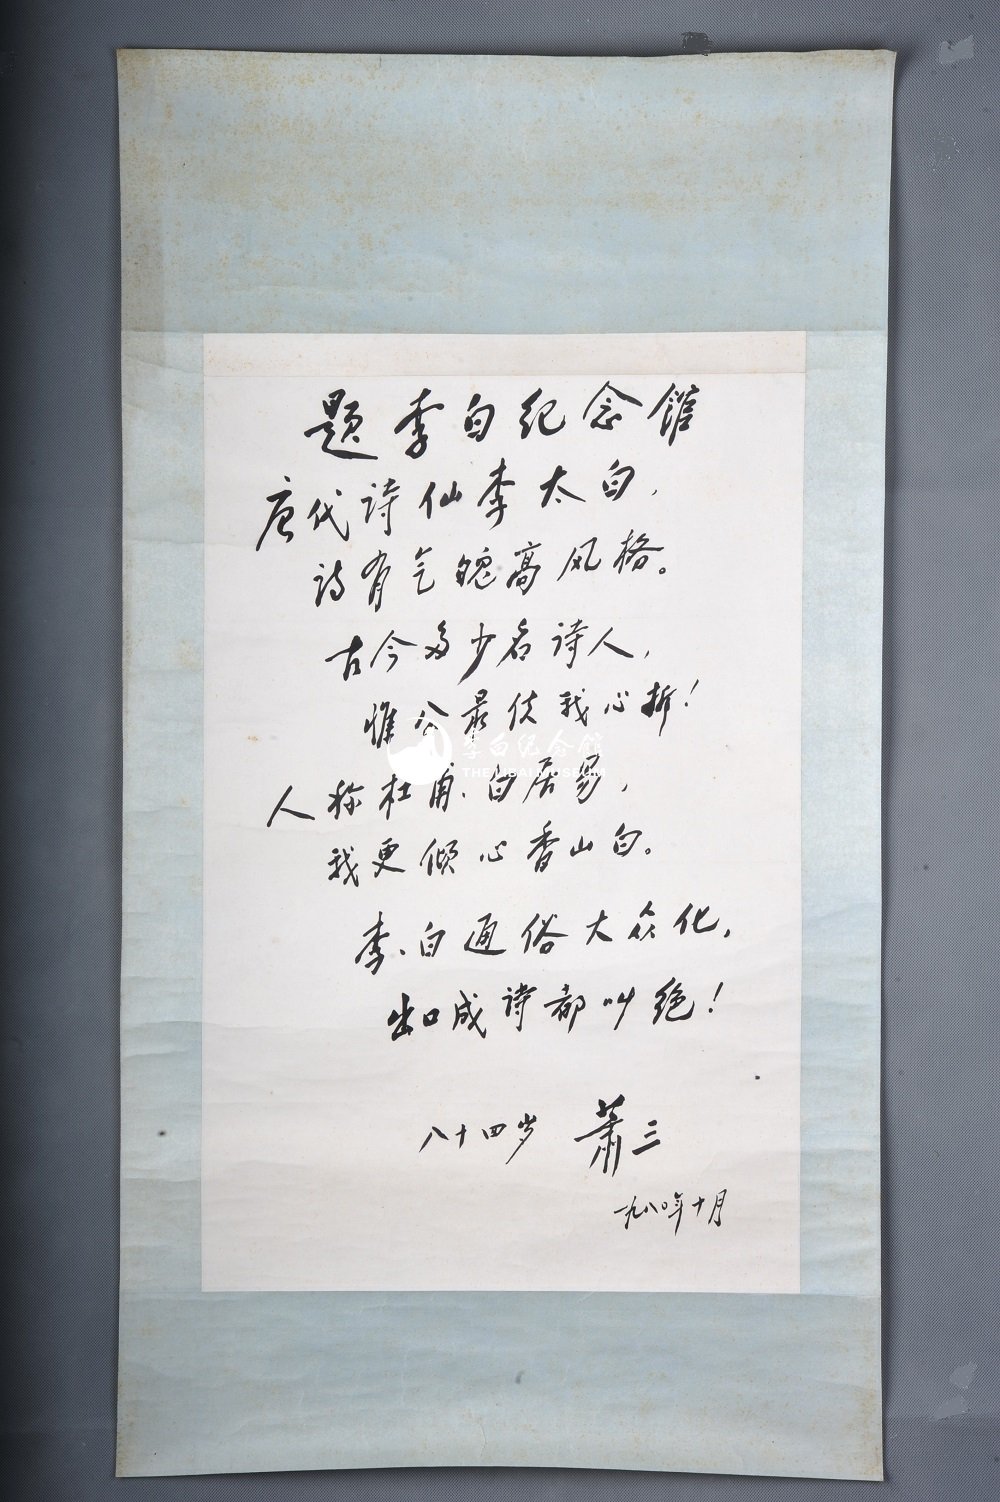 题李白纪念馆
唐代诗仙李太白，
诗有气魄高风格。
古今多少名诗人，
惟公最使我心折！
李白纪念館
THE LIBAI MUSEUM
人称杜甫、白居易，
我更倾心香山白。
李、白通俗大众化，
出口成诗都叫绝！
八十四岁 萧三
一九八〇年十月